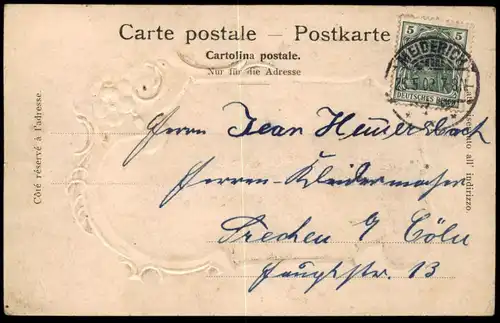 Carte postale – Postkarte
Cartolina postale.
Nur für die Adresse
5 5
MEIDERICH
DEUTSCHES REICH
Côté réservé à l'adresse.
Lato riservato all' indirizzo
Herrn Jean Heuersbach
Herren-Kleidermacher
Frechen b/ Cöln
Hauptstr. 13